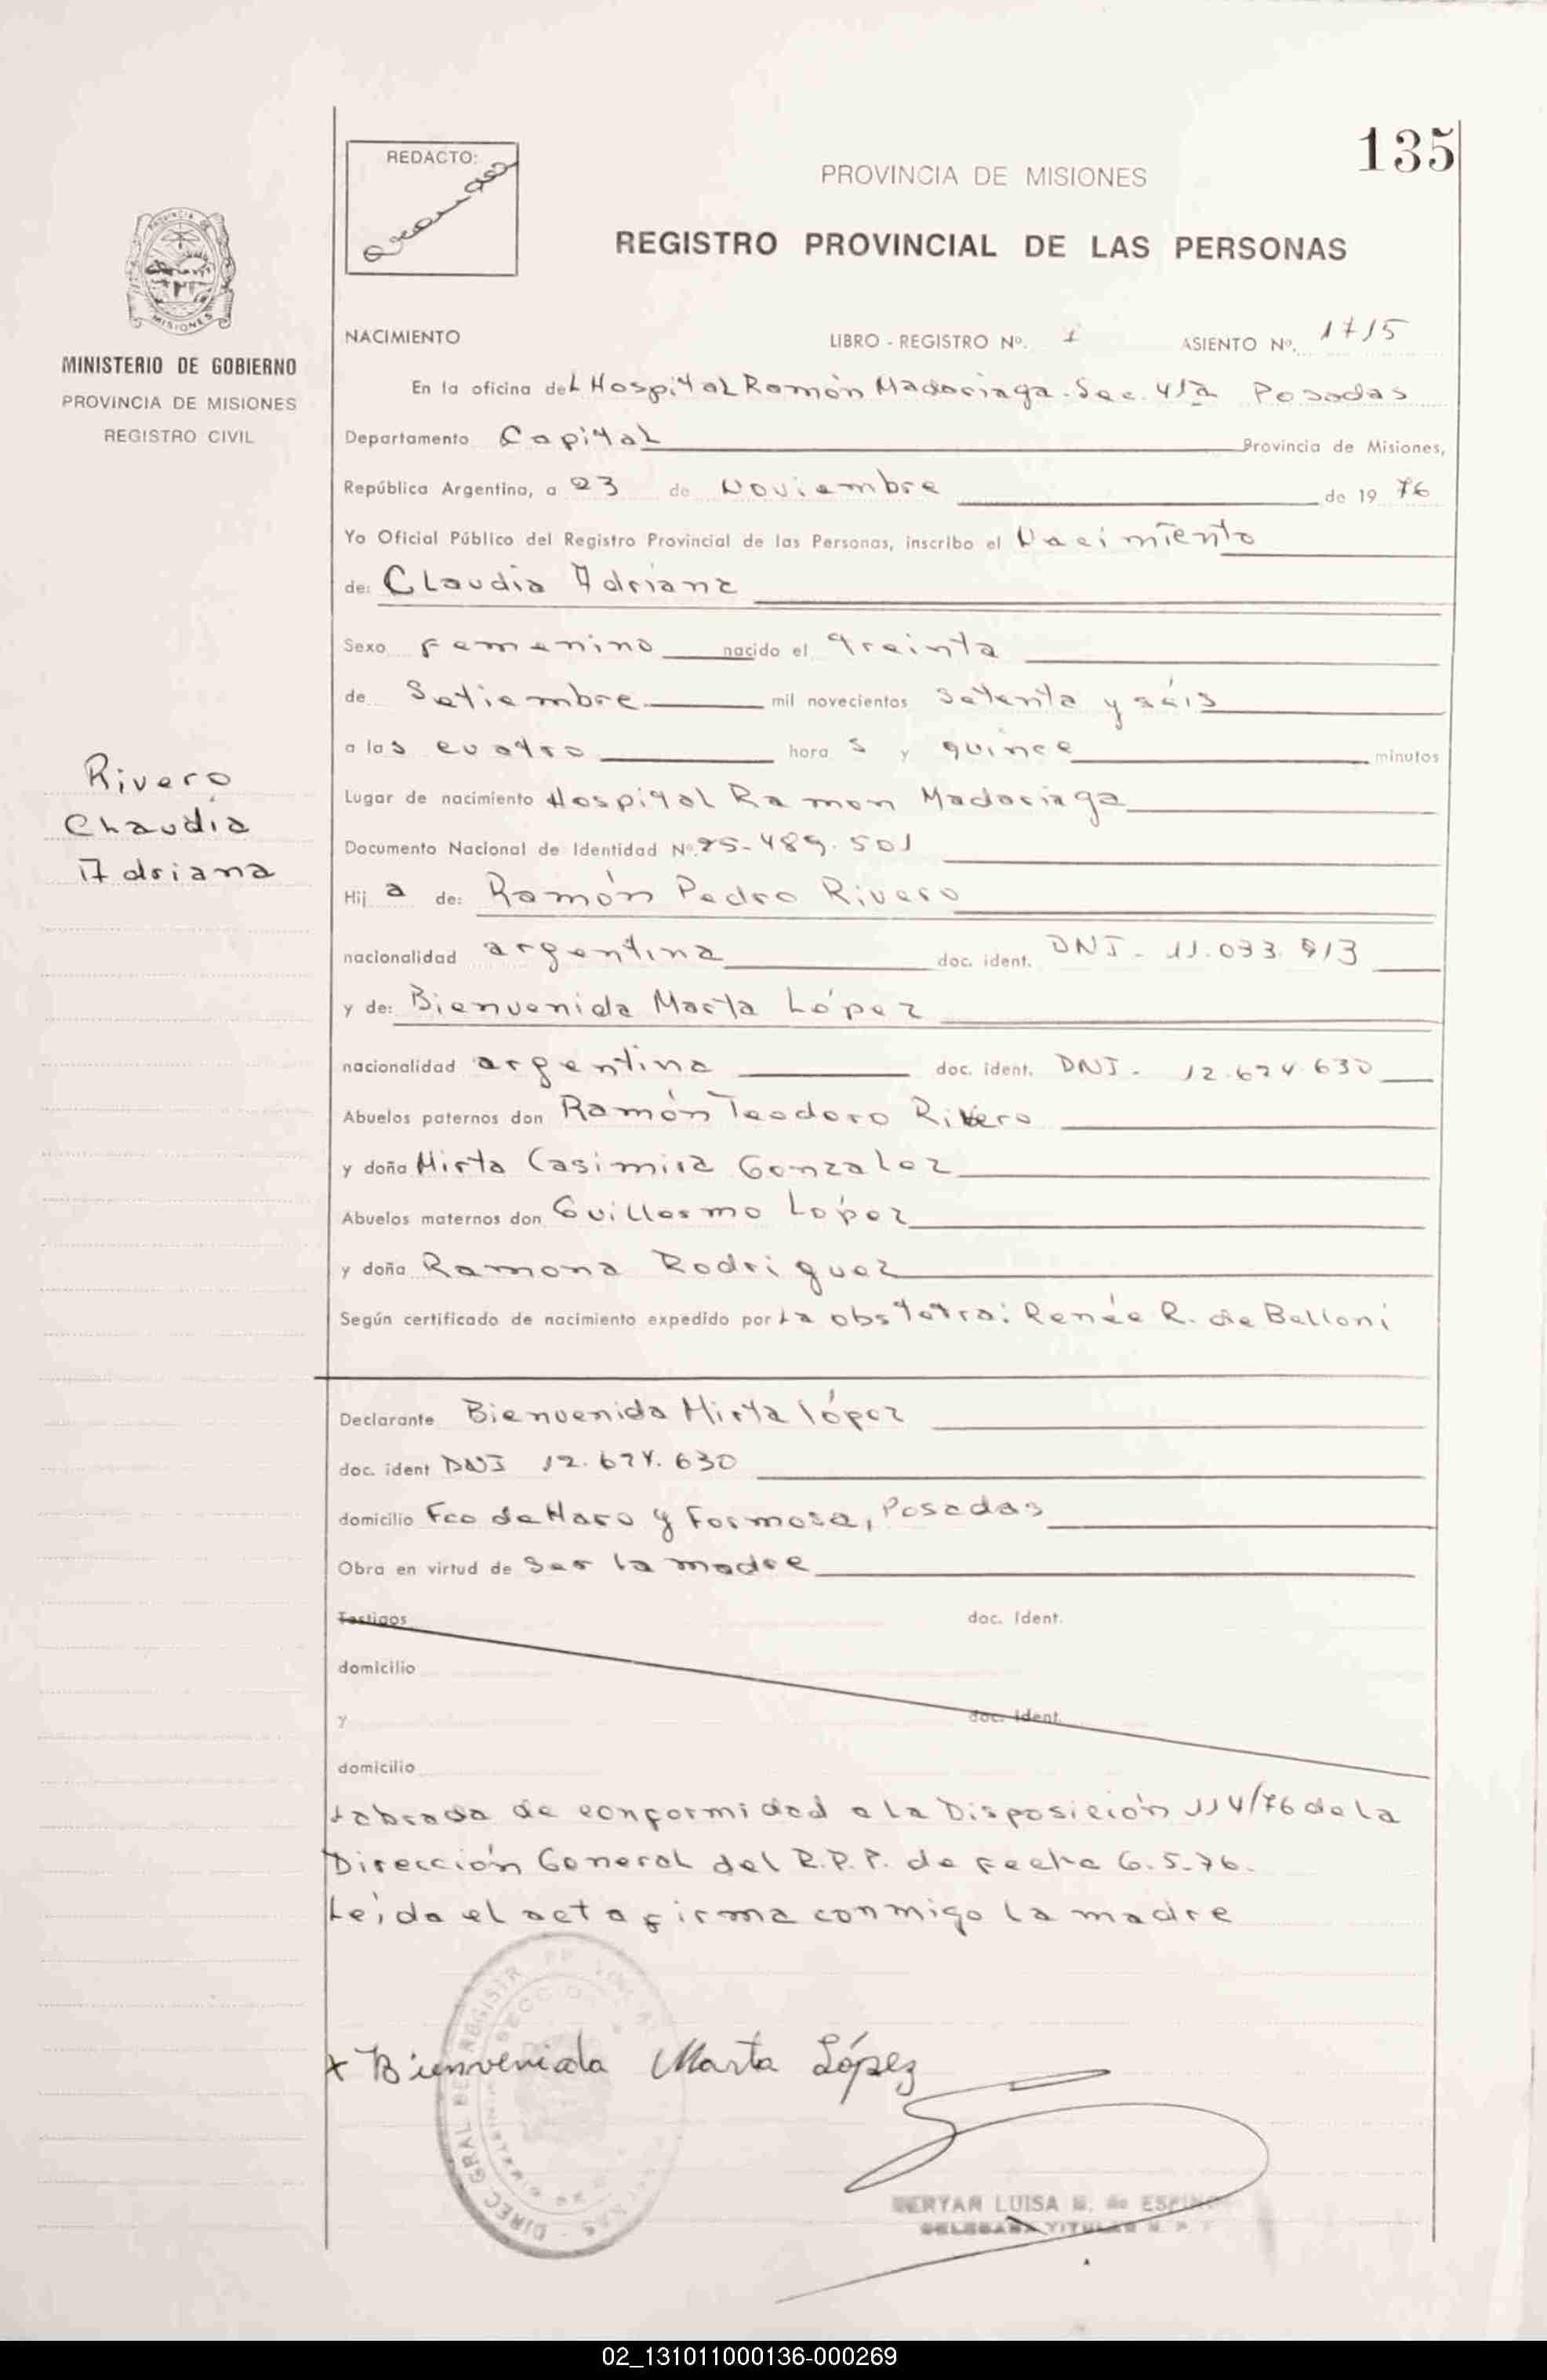 135
REDACTO:
PROVINCIA DE MISIONES
REGISTRO PROVINCIAL DE LAS PERSONAS
MINISTERIO DE GOBIERNO
PROVINCIA DE MISIONES
REGISTRO CIVIL
NACIMIENTO LIBRO - REGISTRO Nº. 1 ASIENTO Nº. 1715
En la oficina del Hospital Ramón Madariaga. Sec. 4ta Posadas
Departamento Capital Provincia de Misiones,
República Argentina, a 23 de Noviembre de 1976
Yo Oficial Público del Registro Provincial de las Personas, inscribo el Nacimiento
de: Claudia Adriana
Sexo femenino nacido el treinta
de Setiembre mil novecientos setenta y séis
a las cuatro hora s y quince minutos
Rivero
Claudia
Adriana
Lugar de nacimiento Hospital Ramon Madariaga
Documento Nacional de Identidad Nº. 25-489.501
Hij a de: Ramón Pedro Rivero
nacionalidad argentina doc. ident. DNI - 11.033.913
y de: Bienvenida Marta López
nacionalidad argentina doc. ident. DNI - 12.674.630
Abuelos paternos don Ramón Teodoro Rivero
y doña Mirta Casimira Gonzalez
Abuelos maternos don Guillermo López
y doña Ramona Rodriguez
Según certificado de nacimiento expedido por la obstetra: Renée R. de Belloni
Declarante Bienvenida Mirta López
doc. ident DNI 12.674.630
domicilio Fco de Haro y Formosa, Posadas
Obra en virtud de ser la madre
Testigos doc. Ident.
domicilio
y doc. Ident.
domicilio
Labrada de conformidad a la Disposición 114/76 de la
Dirección General del R.P.P. de fecha 6.5.76.
Leida el acta firma conmigo la madre
x Bienvenida Marta López
LUISA
02_131011000136-000269